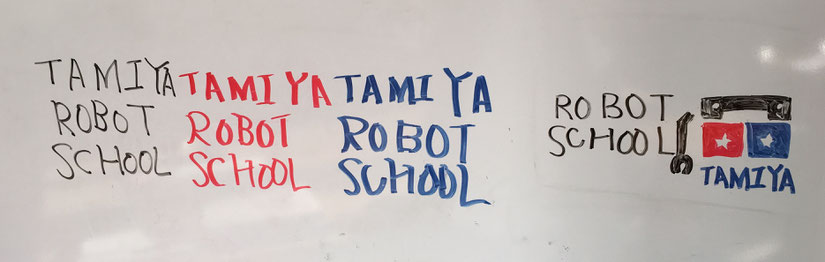 TAMIYA
ROBOT
SCHOOL
TAMIYA
ROBOT
SCHOOL
TAMIYA
ROBOT
SCHOOL
ROBOT
SCHOOL
TAMIYA